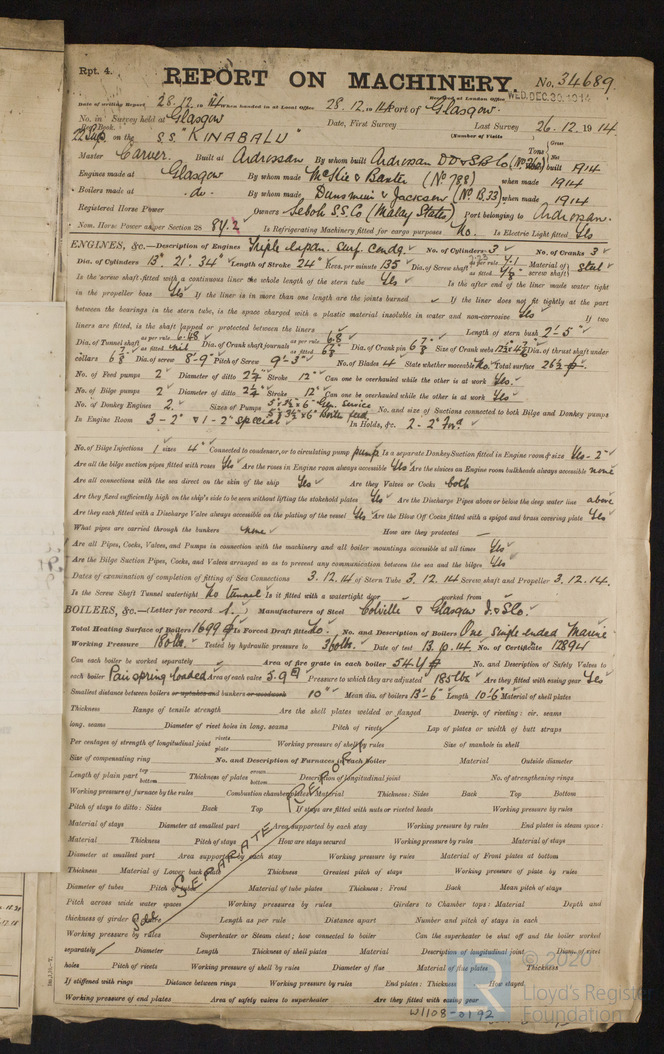 Rpt. 4.
REPORT ON MACHINERY.
No. 34689
WED. DEC. 30. 1914
Date of writing Report 28.12.14 When handed in at Local Office 28.12.14 Port of Glasgow
No. in Survey held at Glasgow Date, First Survey Last Survey 26.12.1914
Reg. Book.
on the S.S. "KINABALU" (Number of Visits
Master Carver Built at Ardrossan By whom built Ardrossan D.D. & S.B. Co (No 260) When built 1914
Engines made at Glasgow By whom made McKie & Baxter (No 788) when made 1914
Boilers made at do. By whom made Dunsmuir & Jackson (No B.33) when made 1914
Registered Horse Power Owners Sebok S.S. Co (Malay States) Port belonging to Ardrossan.
Nom. Horse Power as per Section 28 84.2 Is Refrigerating Machinery fitted for cargo purposes No. Is Electric Light fitted Yes
ENGINES, &c.—Description of Engines Triple expan. surf. condg. No. of Cylinders 3 No. of Cranks 3
Dia. of Cylinders 13" 21" 34" Length of Stroke 24" Revs. per minute 135 Dia. of Screw shaft as per rule 7.1 as fitted Material of screw shaft steel
Is the screw shaft fitted with a continuous liner the whole length of the stern tube Yes Is the after end of the liner made water tight
in the propeller boss Yes If the liner is in more than one length are the joints burned If the liner does not fit tightly at the part
between the bearings in the stern tube, is the space charged with a plastic material insoluble in water and non-corrosive Yes If two
liners are fitted, is the shaft lapped or protected between the liners Length of stern bush 2'-5"
Dia. of Tunnel shaft as per rule 6.48 as fitted nil Dia. of Crank shaft journals as per rule 6.8 as fitted 6 7/8 Dia. of Crank pin 6 7/8 Size of Crank webs Dia. of thrust shaft under
collars 6 7/8 Dia. of screw 8'-9" Pitch of Screw 9'-3" No. of Blades 4 State whether moveable No. Total surface 26 1/2
No. of Feed pumps 2 Diameter of ditto 2 1/4" Stroke 12" Can one be overhauled while the other is at work Yes.
No. of Bilge pumps 2 Diameter of ditto 2 1/4" Stroke 12" Can one be overhauled while the other is at work Yes
No. of Donkey Engines 2. Sizes of Pumps 5" x 3 1/2 x 6" Gen. service 5" x 3 1/2 x 6" Boiler feed No. and size of Suctions connected to both Bilge and Donkey pumps
In Engine Room 3 - 2" & 1 - 2" special In Holds, &c. 2 - 2" For'd
No. of Bilge Injections 1 sizes 4" Connected to condenser, or to circulating pump pump Is a separate Donkey Suction fitted in Engine room & size Yes - 2"
Are all the bilge suction pipes fitted with roses Yes Are the roses in Engine room always accessible Yes Are the sluices on Engine room bulkheads always accessible none
Are all connections with the sea direct on the skin of the ship Yes Are they Valves or Cocks both
Are they fixed sufficiently high on the ship's side to be seen without lifting the stokehold plates Yes Are the Discharge Pipes above or below the deep water line above
Are they each fitted with a Discharge Valve always accessible on the plating of the vessel Yes Are the Blow Off Cocks fitted with a spigot and brass covering plate Yes
What pipes are carried through the bunkers none How are they protected —
Are all Pipes, Cocks, Valves, and Pumps in connection with the machinery and all boiler mountings accessible at all times Yes
Are the Bilge Suction Pipes, Cocks, and Valves arranged so as to prevent any communication between the sea and the bilges Yes
Dates of examination of completion of fitting of Sea Connections 3.12.14 of Stern Tube 3.12.14 Screw shaft and Propeller 3.12.14.
Is the Screw Shaft Tunnel watertight No tunnel Is it fitted with a watertight door worked from
BOILERS, &c.—(Letter for record ) Manufacturers of Steel Colville & Glasgow I. & S. Co.
Total Heating Surface of Boilers 1699 Is Forced Draft fitted No. No. and Description of Boilers One, Single ended Marine
Working Pressure 180 lbs. Tested by hydraulic pressure to 360 lbs. Date of test 13.10.14. No. of Certificate 12894
Can each boiler be worked separately Area of fire grate in each boiler 54.4 No. and Description of Safety Valves to
each boiler Pair spring loaded Area of each valve 5.9 Pressure to which they are adjusted 185 lbs Are they fitted with easing gear Yes
Smallest distance between boilers or uptakes and bunkers or woodwork 10" Mean dia. of boilers 13'-6" Length 10'-6" Material of shell plates
Thickness Range of tensile strength Are the shell plates welded or flanged Descrip. of riveting: cir. seams
long. seams Diameter of rivet holes in long. seams Pitch of rivets Lap of plates or width of butt straps
Per centages of strength of longitudinal joint rivets plate Working pressure of shell by rules Size of manhole in shell
Size of compensating ring No. and Description of Furnaces in each boiler Material Outside diameter
Length of plain part top bottom Thickness of plates crown bottom Description of longitudinal joint No. of strengthening rings
Working pressure of furnace by the rules Combustion chamber plates: Material Thickness: Sides Back Top Bottom
Pitch of stays to ditto: Sides Back Top If stays are fitted with nuts or riveted heads Working pressure by rules
Material of stays Diameter at smallest part Area supported by each stay Working pressure by rules End plates in steam space:
Material Thickness Pitch of stays How are stays secured Working pressure by rules Material of stays
Diameter at smallest part Area supported by each stay Working pressure by rules Material of Front plates at bottom
Thickness Material of Lower back plate Thickness Greatest pitch of stays Working pressure of plate by rules
Diameter of tubes Pitch of tubes Material of tube plates Thickness: Front Back Mean pitch of stays
Pitch across wide water spaces Working pressures by rules Girders to Chamber tops: Material Depth and
thickness of girder at centre Length as per rule Distance apart Number and pitch of stays in each
Working pressure by rules Superheater or Steam chest; how connected to boiler Can the superheater be shut off and the boiler worked
separately Diameter Length Thickness of shell plates Material Description of longitudinal joint Diam. of rivet
holes Pitch of rivets Working pressure of shell by rules Diameter of flue Material of flue plates Thickness
If stiffened with rings Distance between rings Working pressure by rules End plates: Thickness How stayed
Working pressure of end plates Area of safety valves to superheater Are they fitted with easing gear
See SEPARATE REPORT
© 2020
Lloyd's Register
Foundation
W1108-0192